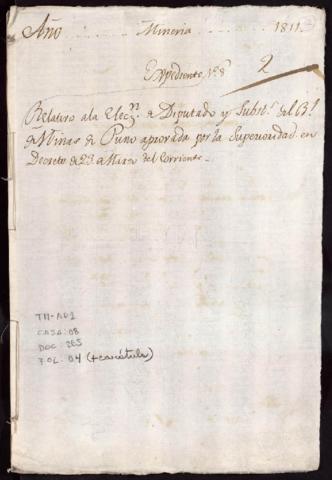 Año Mineria 1811
Expediente
2
Relativo ala Elecn. de Diputado y Substo. del Rl.
de Minas de Puno aprovada por la Superioridad en
Decreto de 23 de Marzo del Corriente
TM-AD1
CAJA: 08
DOC: 265
FOL: 04 (+carátula)